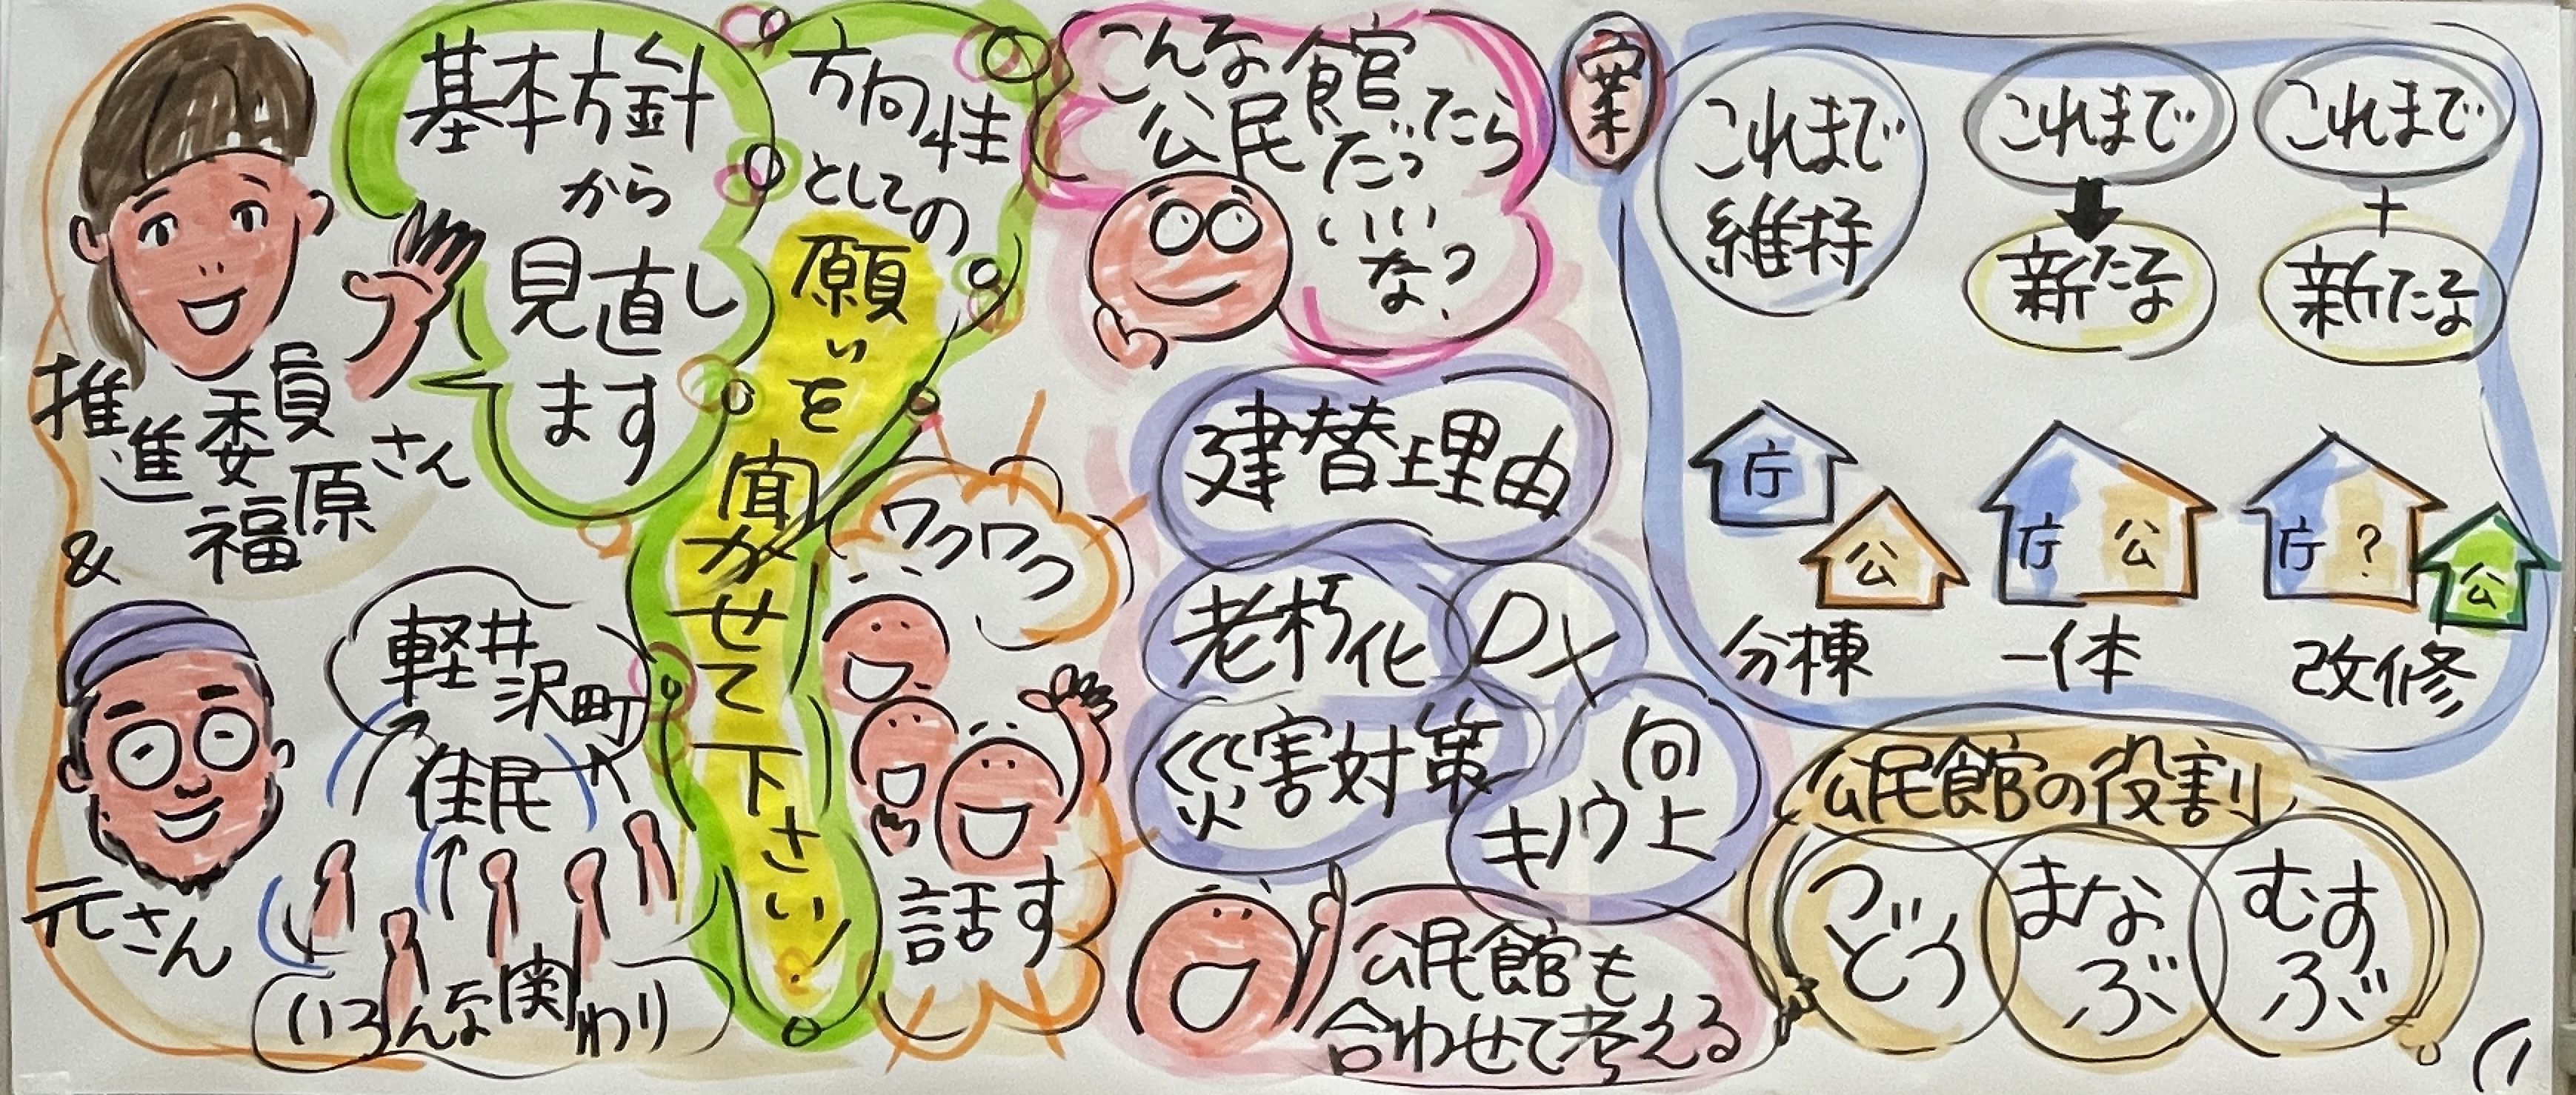 推進委員
福原さん
&
元さん
基本方針
から
見直し
ます
軽井沢町
住民
いろんな関わり
方向性
としての
願いを聞かせて下さい!
ワクワク
話す
こんな
公民館
だったら
いい
な?
建替理由
老朽化
DX
災害対策
キノウ向上
公民館も
合わせて考える
案
これまで
維持
これまで
新たな
これまで
+
新たな
庁
公
分棟
庁 公
一体
庁 ?
公
改修
公民館の役割
つどう
まなぶ
むすぶ